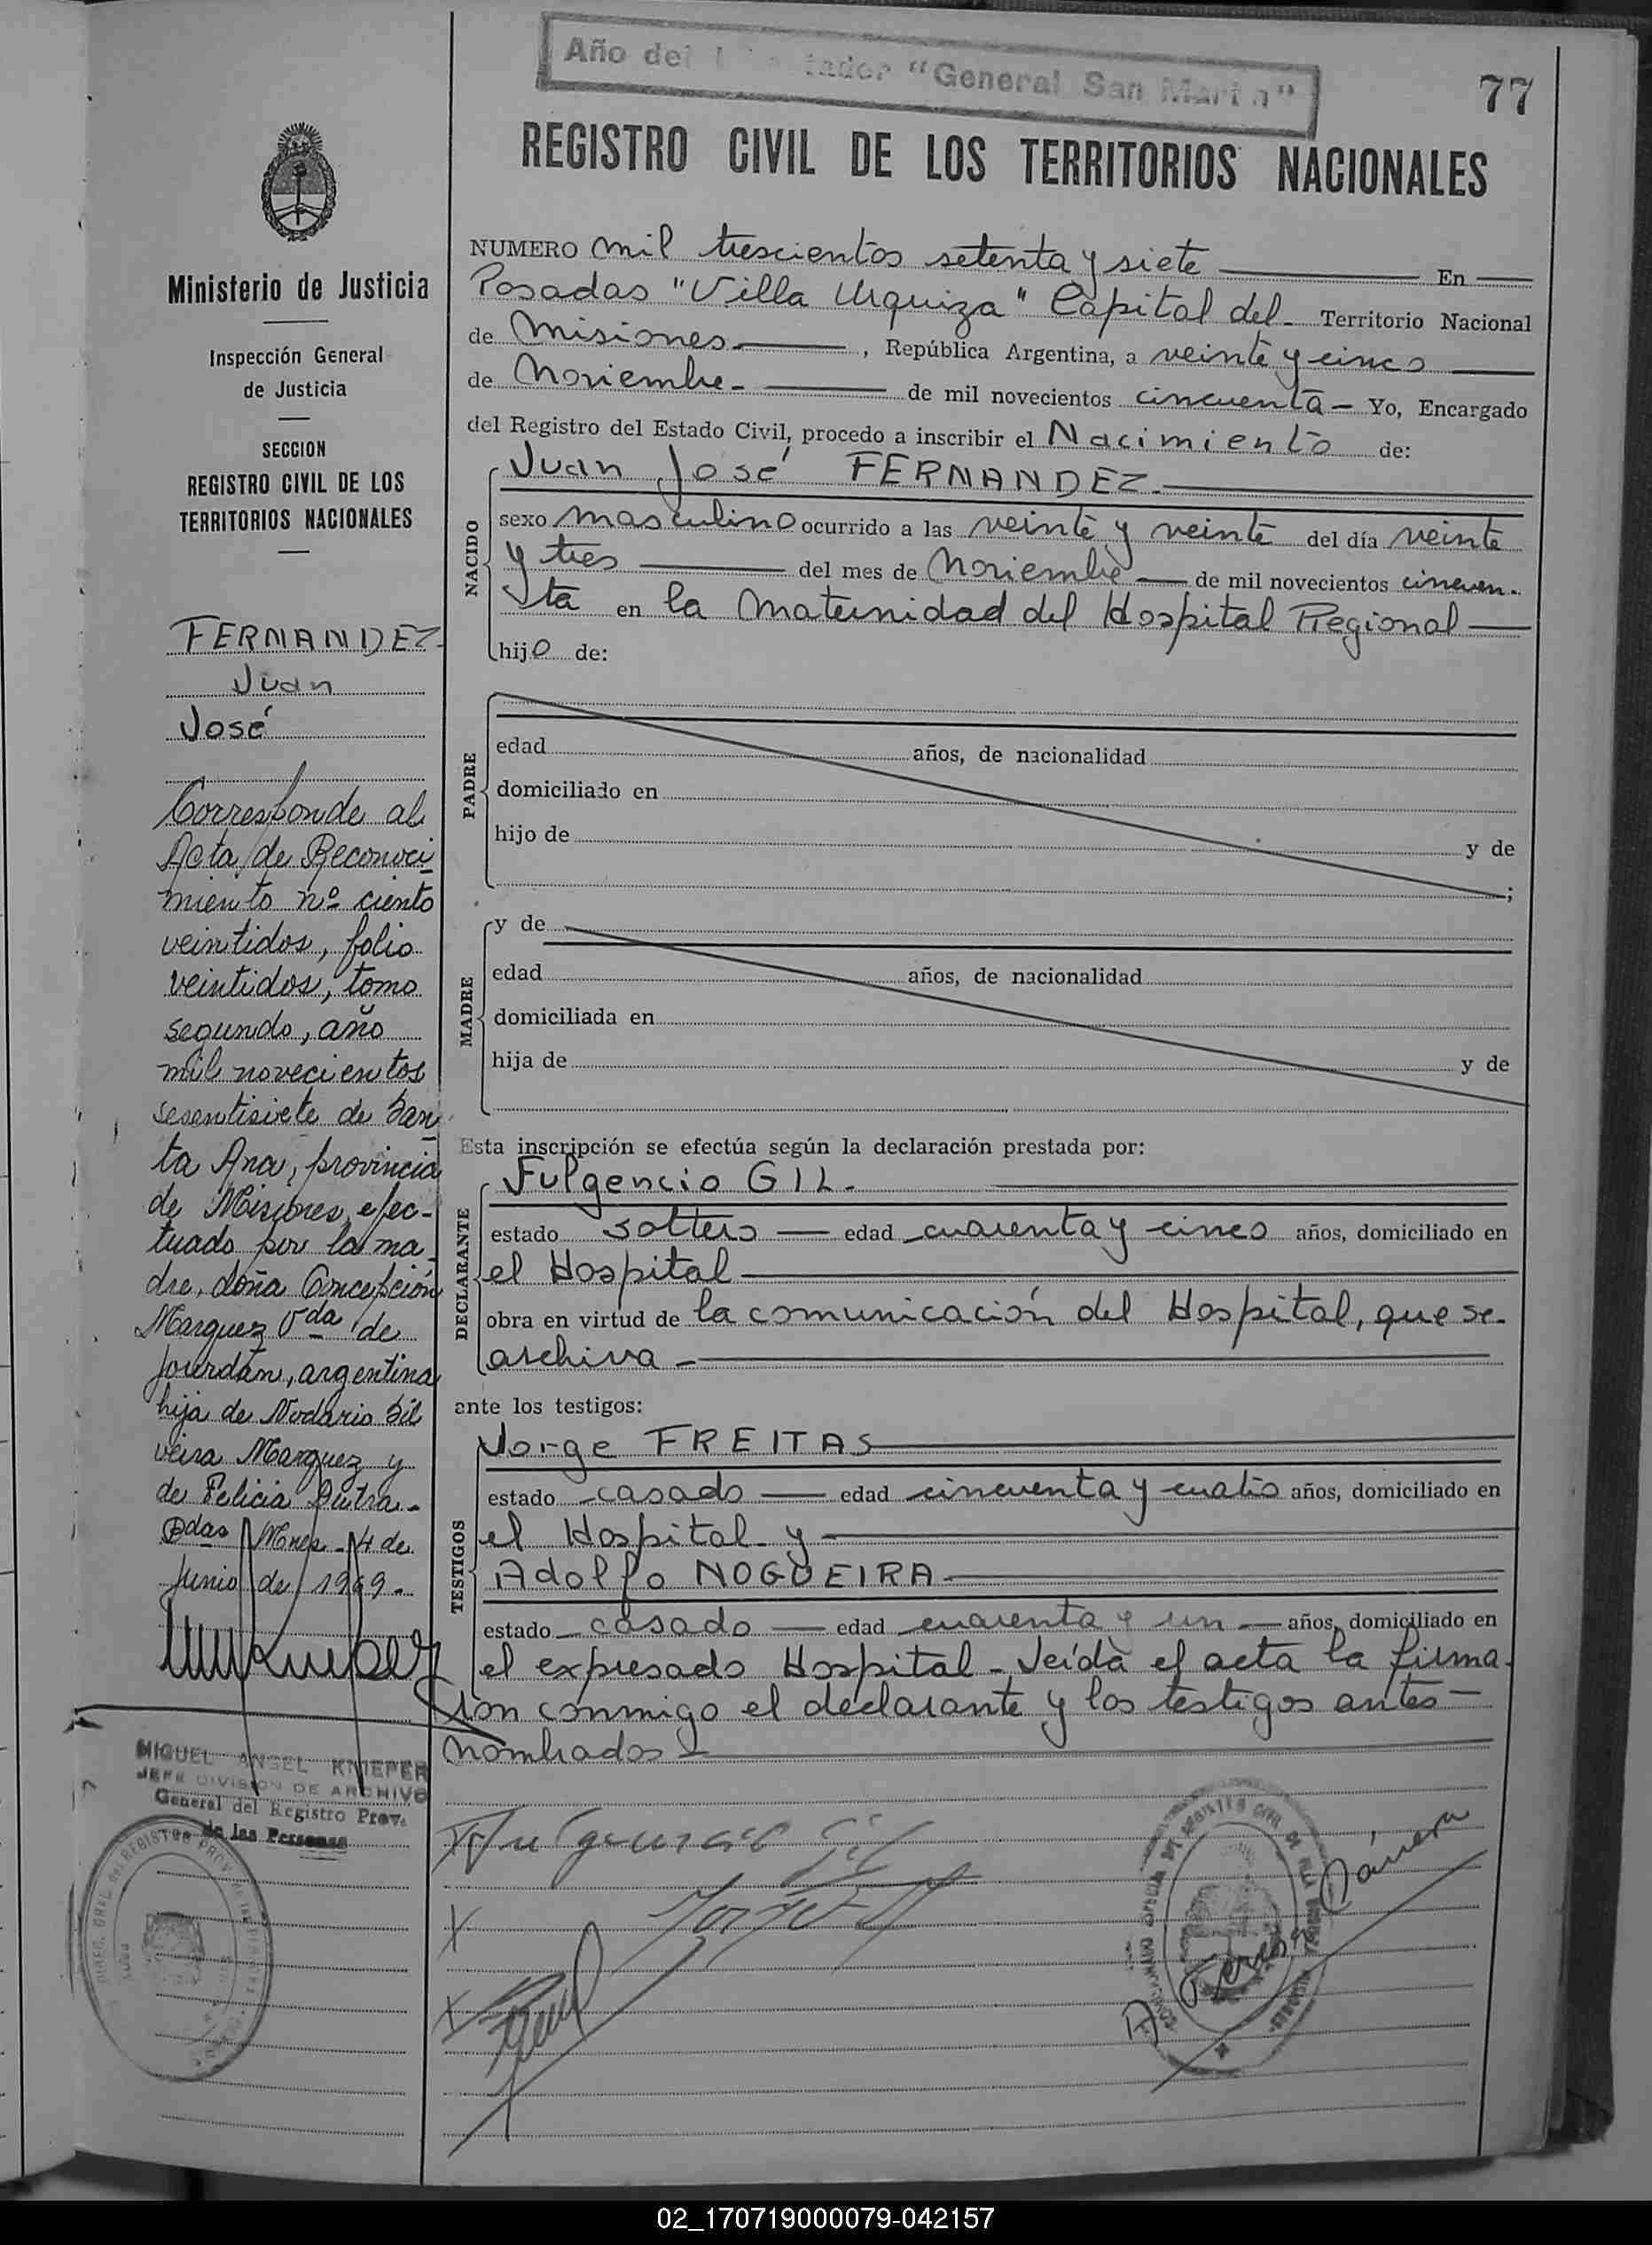 Año del "General San Martin"
77
REGISTRO CIVIL DE LOS TERRITORIOS NACIONALES
Ministerio de Justicia
Inspección General
de Justicia
SECCION
REGISTRO CIVIL DE LOS
TERRITORIOS NACIONALES
FERNANDEZ
Juan
José
Corresponde al
Acta de Reconoci
miento nº ciento
veintidos, folio
veintidos, tomo
segundo, año
mil novecientos
sesentisiete de San
ta Ana, provincia
de Misiones, efec-
tuado por la ma
dre, doña Concepción
Marquez Vda de
Jourdan, argentina
hija de Nodario Sil
veira Marquez y
de Felicia Dutra.-
Pdas Mnes - 4 de
Junio de 1969.-
MIGUEL ANGEL KNIEPER
JEFE DIVISION DE ARCHIVO
General del Registro Prov.
de las Personas
NUMERO mil trescientos setenta y siete En
Posadas "Villa Urquiza" Capital del Territorio Nacional
de Misiones, República Argentina, a veinte y cinco
de Noviembre de mil novecientos cincuenta - Yo, Encargado
del Registro del Estado Civil, procedo a inscribir el Nacimiento de:
NACIDO
Juan José FERNANDEZ.
sexo masculino ocurrido a las veinte y veinte del día veinte
y tres del mes de Noviembre de mil novecientos cincuen-
ta en la Maternidad del Hospital Regional
hijo de:
PADRE
edad años, de nacionalidad
domiciliado en
hijo de y de
;
MADRE
y de
edad años, de nacionalidad
domiciliada en
hija de y de
Esta inscripción se efectúa según la declaración prestada por:
DECLARANTE
Fulgencio GIL.
estado soltero edad cuarenta y cinco años, domiciliado en
el Hospital
obra en virtud de la comunicación del Hospital, que se
archiva -
ante los testigos:
TESTIGOS
Jorge FREITAS
estado casado edad cincuenta y cuatro años, domiciliado en
el Hospital y
Adolfo NOGUEIRA
estado casado edad cuarenta y un años, domiciliado en
el expresado Hospital - Leída el acta la firma
ron conmigo el declarante y los testigos antes
nombrados -
Fulgencio Gil
02_170719000079-042157